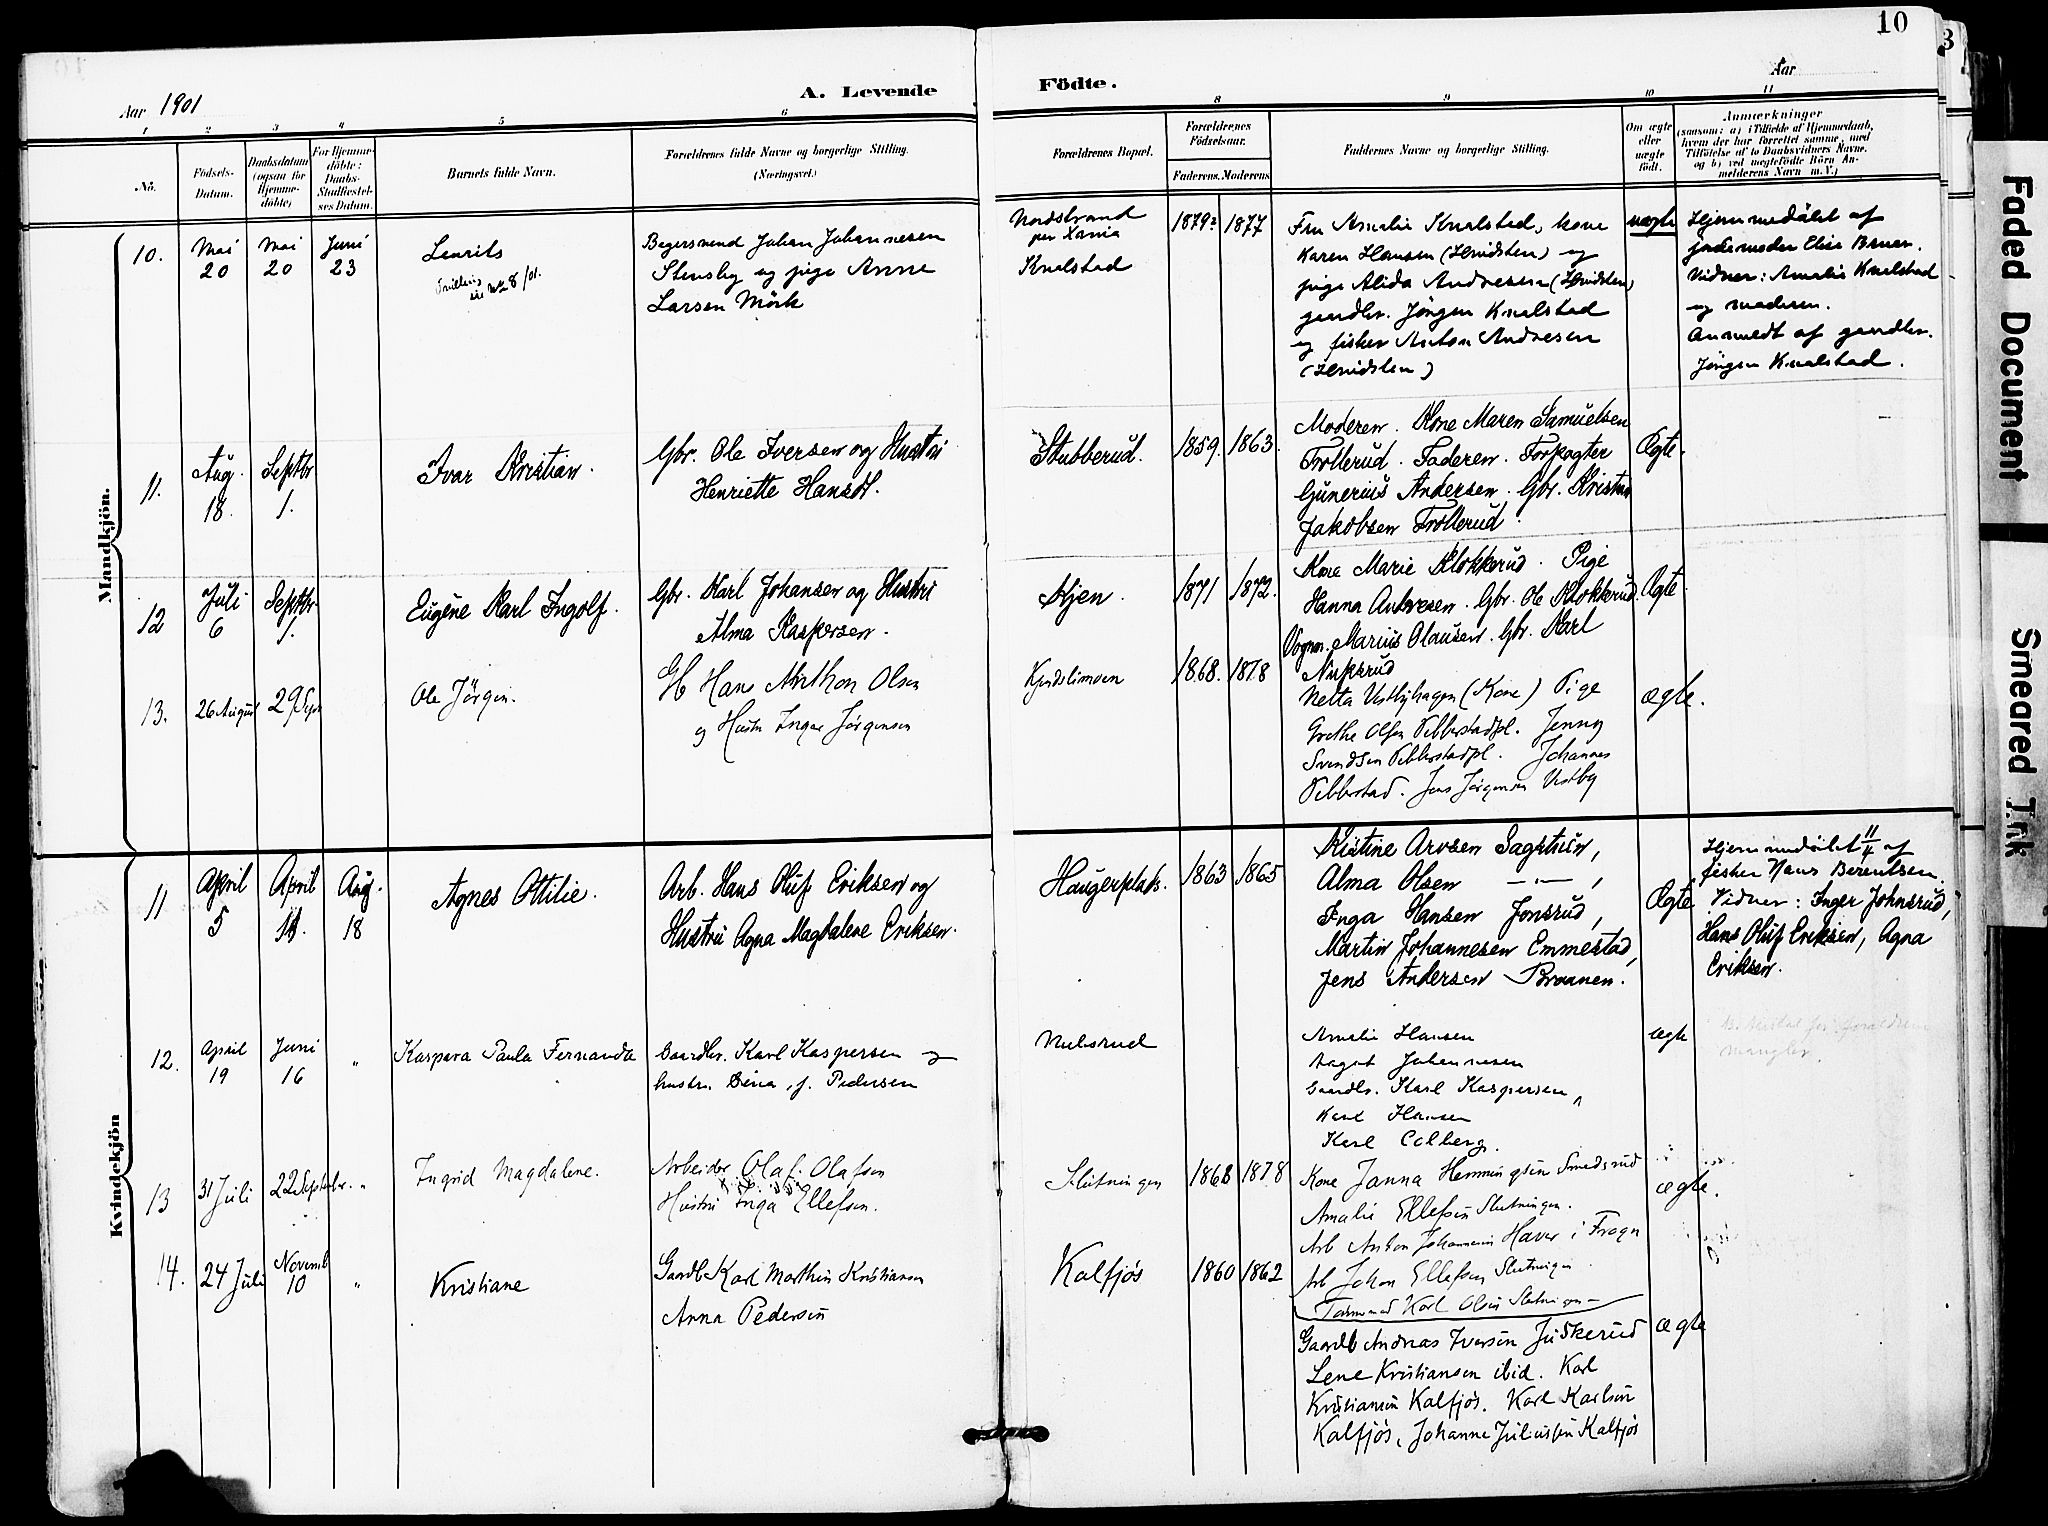 10
Aar 1901
A. Levende
Födte.
Aar
1 2 3 4 5 6
8 9 10 11
No.
Födsels-Datum.
Daabsdatum (ogsaa for Hjemme-döbte)
For Hjemme-döbte: Daabs-Stadfæstel-ses Datum.
Barnets fulde Navn.
Forældrenes fulde Navne og borgerlige Stilling. (Næringsvei.)
Forældrenes Bopæl.
Forældrenes Födselsaar.
Faderens. Moderens
Faddernes Navne og borgerlige Stilling.
Om ægte eller uægte födt.
Anmærkninger
(saasom: a) i Tilfælde af Hjemmedaab,
hvem der har forrettet samme, med
Tilföielse af to Daabsvidners Navne.
og b) ved uægtefödte Börn An-
melderens Navn m.V.)
Mandkjön.
10.
Mai 20
Mai 20
Juni 23
Laurits
Tvilling
No 8/01.
Bagersvend Johan Johannesen
Stensby og pige Anne
Larsen Mörk
Nordstrand
per Xania
Knalstad
1879? 1877
Fru Amalie Knalstad, kone
Karen Hansen (Hvidsten) og
pige Alida Andresen (Hvidsten)
gaardbr. Jörgen Knalstad
og fisker Anton Andresen
(Hvidsten)
uægte
Hjemmedöbt af
jordemoder Elise Bruer.
Vidner: Amalie Knalstad
og moderen.
Anmeldt af gaardbr.
Jörgen Knalstad.
11.
Aug. 18.
Septbr 1.
Ivar Kristian.
Gbr. Ole Iversen og Hustru
Henriette Hansdt.
Stubberud.
1859. 1863.
Moderen. Kone Maren Samuelsen
Trollerud. Faderen. Forpagter
Gunerius Andersen. Gbr. Kristian
Jakobsen Trollerud.
Ægte.
12
Juli 6
Septbr. 1.
Eugène Karl Ingolf.
Gbr. Karl Johansen og Hustru
Alma Kaspersen.
Hjen.
1871 1872.
Kone Marie Klokkerud. Pige
Hanna Andresen. Gbr. Ole Klokkerud.
Vognm. Marius Olausen. Gbr. Karl
Ægte
13.
26 August
29 Sept
Ole Jörgen.
Gb Hans Anthon Olsen
og Hustru Inga Jörgensen
1868. 1878
Netta Vestbyhagen (Kone) Pige
Grethe Olsen Vebberstadpl. Jenny
Svendsen Vebberstadpl. Johannes
Vebberstad. Jens Jörgensen Vestby
ægte.
Kvindekjön
11
April 5
April 11.
Aug. 18
Agnes Ottilie.
Arb. Hans Oluf Eriksen og
Hustru Agna Magdalene Eriksen.
Haugerplads.
1863 1865
Kistine Arvesen Sagstuen,
Alma Olsen —"— ,
Inga Hansen Jonsrud,
Martin Johannesen Emmestad,
Jens Andersen Braanen.
Ægte
Hjemmedöbt 11/4 af
fisker Hans Berentsen.
Vidner: Inger Johnsrud,
Hans Oluf Eriksen, Agna
Eriksen.
12.
April 19
Juni 16
"
Kaspara Paula Fernanda
Gaardbr. Karl Kaspersen og
hustru Lina, f. Pedersen
Amalie Hansen
Aagot Johannesen
Gaardbr. Karl Kaspersen,
Karl Hansen
Karl Colberg.
ægte
mangler.
13
31 Juli
22 Septembr.
"
Ingrid Magdalene.
Arbeider Olaf Olafsen
Hustru Inga Ellefsen.
Slutningen
1868 1878
Kone Janna Hemmingsen Smedsrud
Amalie Ellefsen Slutningen.
Arb Anton Johannesen Haver i Frogn
Arb Johan Ellefsen Slutningen
Tömmermd Karl Olsen Slutningen
ægte.
14.
24 Juli
Novemb 10
"
Kristiane
Gaardb Karl Marthin Kristiansen
Anna Pedersen
Kalfjös
1860 1862
Gaardb Andreas Iversen Juskerud
Lene Kristiansen ibid. Karl
Kristiansen Kalfjös. Karl Karlsen
Kalfjös, Johanne Juliussen Kalfjös
ægte
Faded Document
Smeared Ink